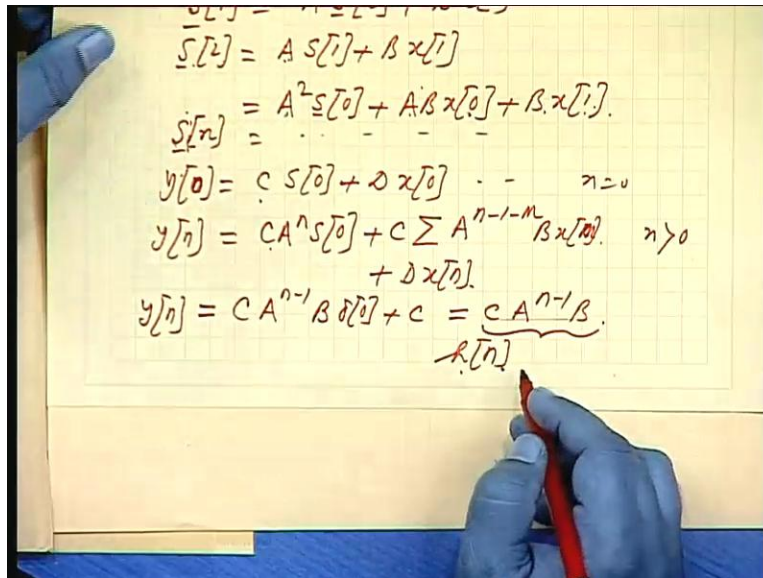 S[2] = A S[1] + B x[1]
= A² S[0] + AB x[0] + B x[1].
S[n] = . . - - -
y[0] = C S[0] + D x[0] . - n=0
y[n] = C Aⁿ S[0] + C Σ A^{n-1-m} B x[m]. n>0
+ D x[n].
y[n] = C A^{n-1} B δ[0] + C = C A^{n-1} B.
h[n]